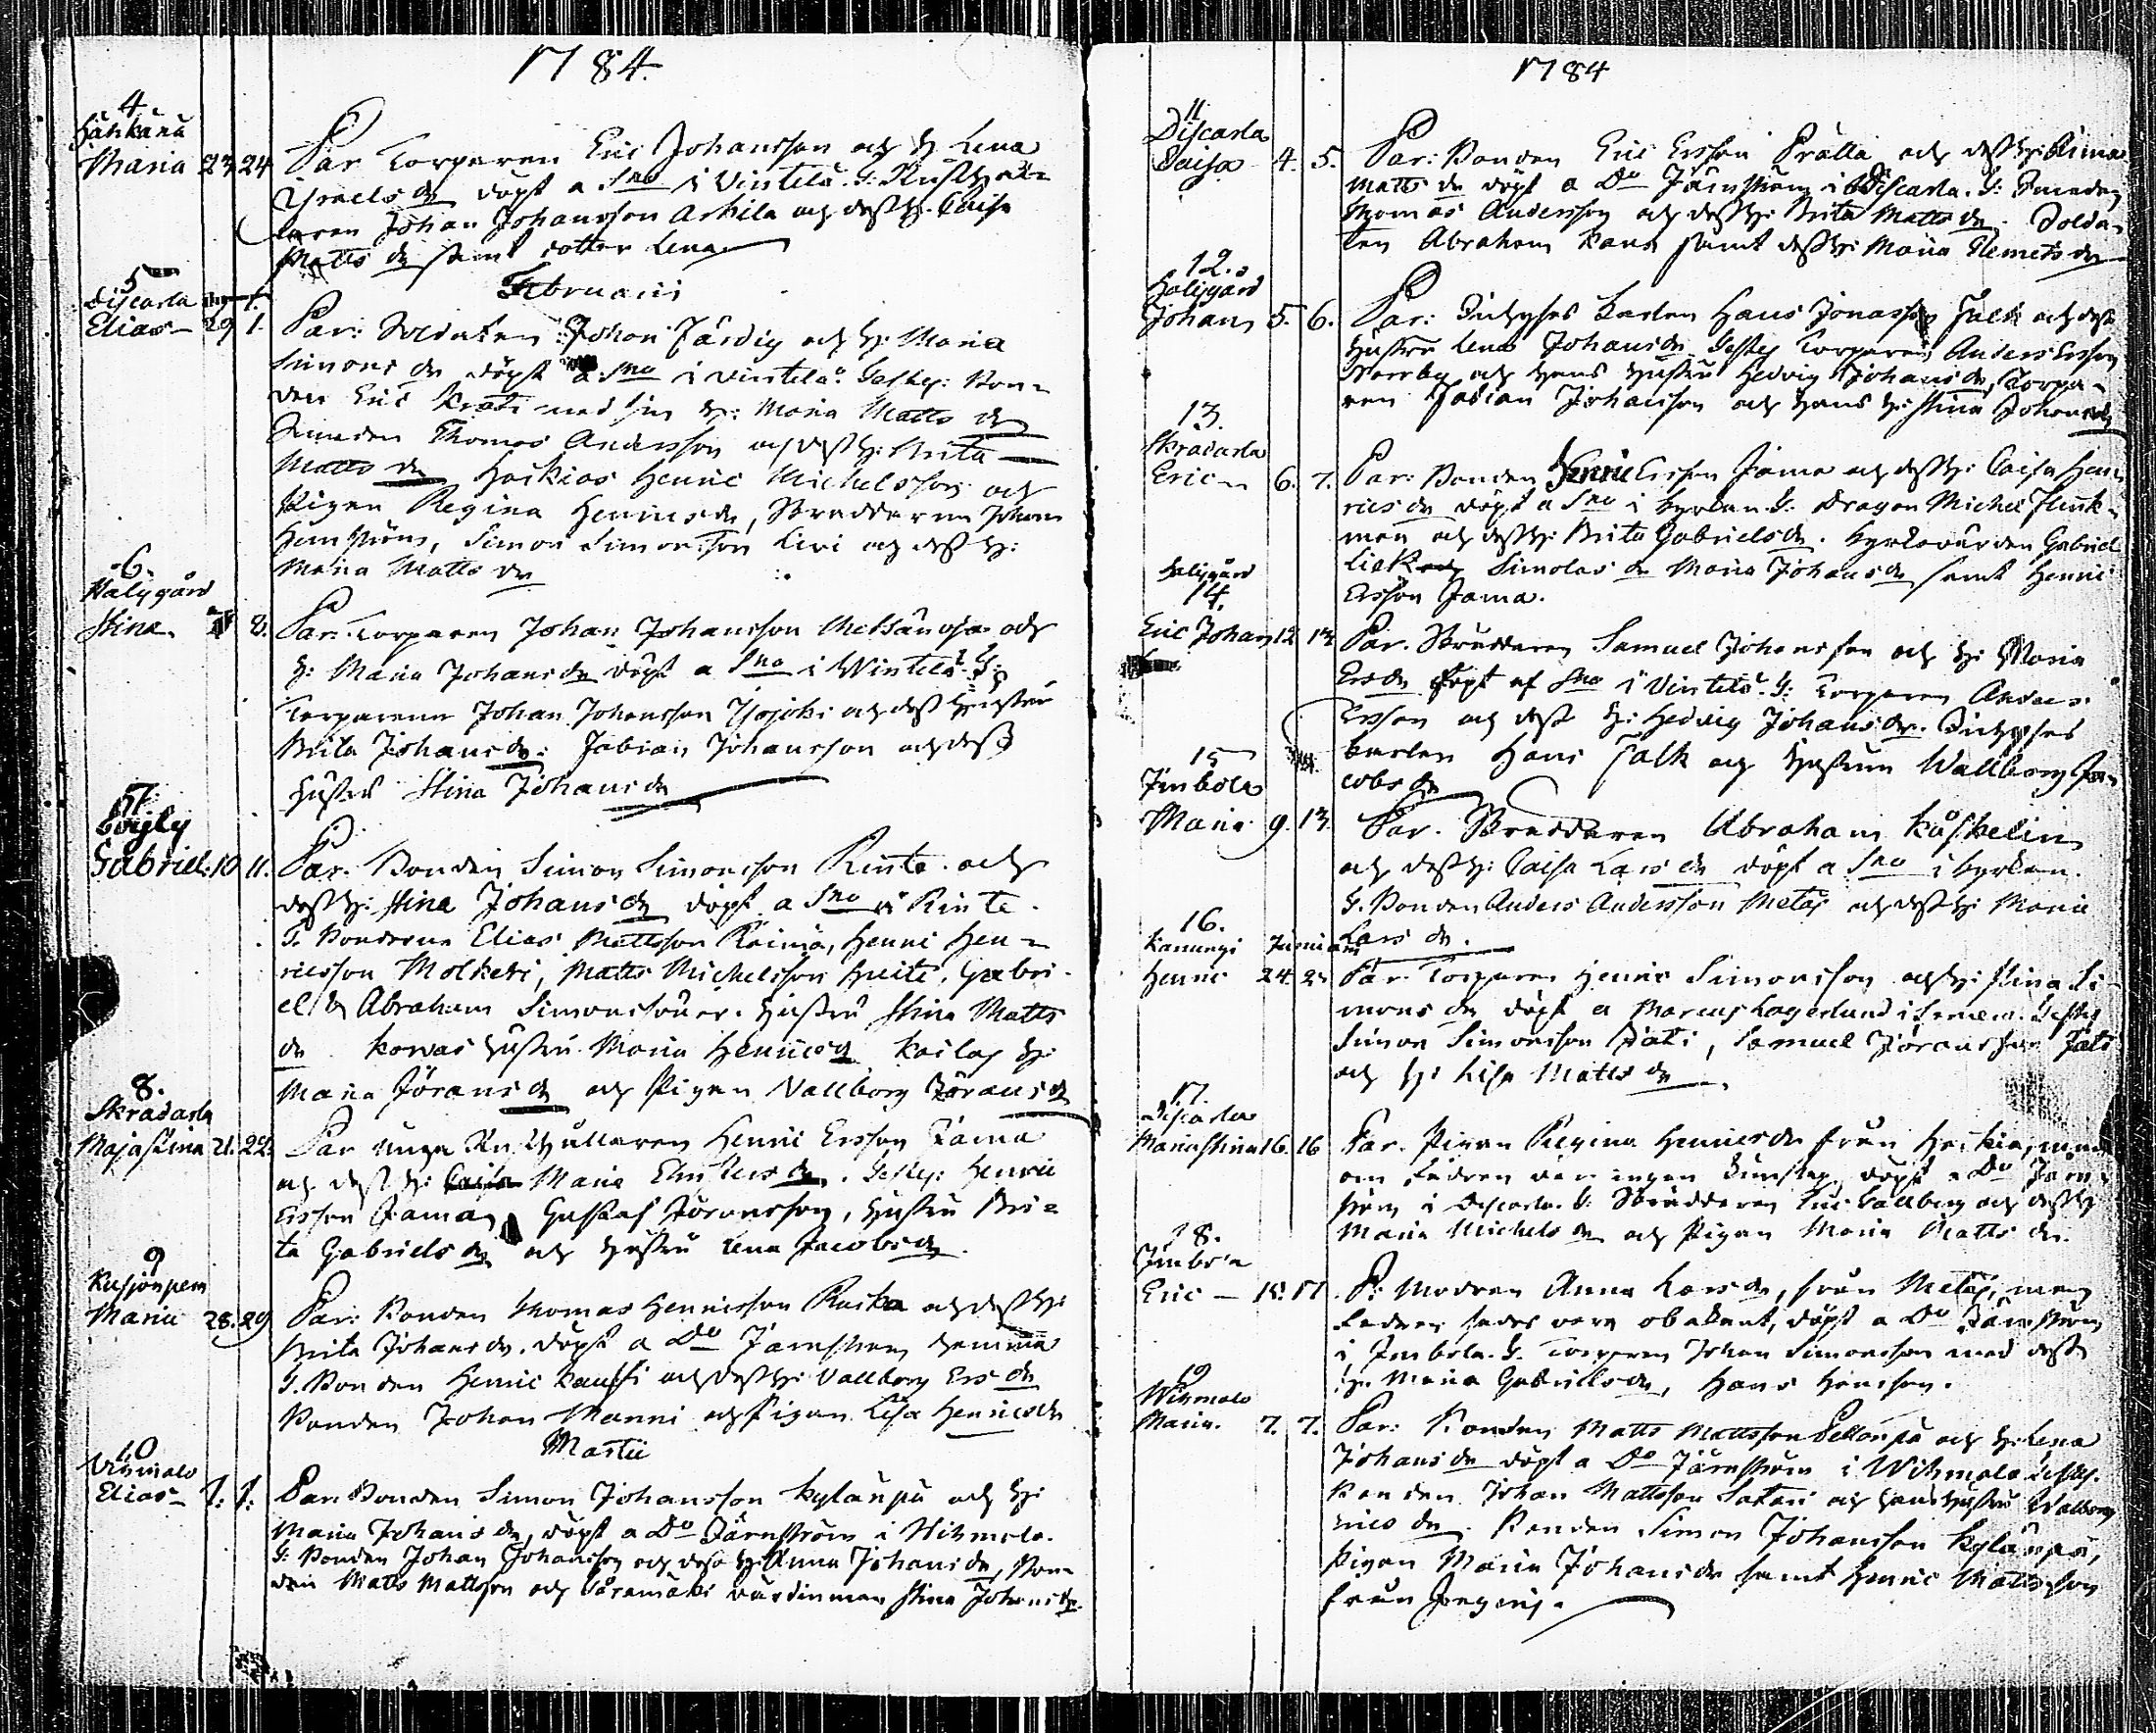 1784.
4
Hähkänä
Maria 23 24 Par Torparen Eric Johansson och H Lena
Ysraels dr döpt a Sno i Vintelä. G: Rusthål-
laren Johan Johansson Arkila och dess H. Caisa
Matts dr samt dotter Lena
Februarii
5
Discarla
Elias 29 1. Par: Soldaten Johan Färdig och H: Maria
Simons dr döpt a Sno i Vintelä. Testes: Bon-
den Eric med sin H: Maria Matts dr
Smeden Thomas Andersson och dess H: Brita
Matts dr Heikias Henric Michelsson och
Pigan Regina Henricsdr, Skreddaren Johan
Hemström, Simon Simonsson Kivi och dess H:
Maria Matts dr
6.
Halygård
Stina. 7 8. Par. Torparen Johan Johansson och
H: Maria Johans dr döpt a Sno i Wintelä. G:
Torparen Johan Johansson Isojoki och dess Hustru
Brita Johans dr. Fabian Johansson och dess
Hustru Stina Johans dr
7.
Gabriel. 10 11. Par. Bonden Simon Simonsson Rinta och
dess H: Stina Johans dr döpt a Sno i Rinta.
T. Bönderne Elias Mattsson Raima, Henric Hen-
ricsson Molkari, Matts Michelsson, Gabri-
el & Abraham Simonssöner. Hustru Stina Matts
dr Hustru Maria Henrics dr H:
Maria Jörans dr och Pigan Vallborg Jörans dr
8.
Skradarla
Maja Stina 21. 22. Par unga Henric Ersson Jama
och dess H: Maria dr. Testes: Henric
Ersson Jama, Gustaf Jöransson, Hustru Bri-
ta Gabriels dr och Hustru Lena Jacobs dr.
9
Kusjonpem
Maria 28. 29 Par: Bonden Thomas Henricsson och dess H:
Brita Johans dr. döpt a Do Järnström hemma
G. Bonden Henric och dess H: Vallborg Ers dr
Bonden Johan Manni och Pigan Lisa Henricsdr
Martii
10
Vihmalo
Elias 1. 1. Par. Bonden Simon Johansson Kylänpä och H:
Maria Johans dr, döpt a Do Järnström i Wihmalo.
G: Bonden Johan Johansson och dess H: Anna Johans dr, Bon-
den Matts Mattsson och värdinnan Stina Johans dr.
1784
11
Discarla
Caisa 4. 5. Par: Bonden Eric Ersson Prälla och dess H:
Matts dr döpt a Do Järnström i Discarla. G: Smeden
Thomas Andersson och dess H: Brita Matts dr. Solda-
ten Abraham Kana samt dess H: Maria Clemets dr
12.
Halygård
Johan 5. 6. Par: Hans Jonasson Falk och dess
Hustru Lena Johans dr Testes Torparen Anders Ersson
Norrby och Hans Hustru Hedvig Johans dr, Torpa-
ren Fabian Johansson och Hans H: Stina Johans dr
13.
Skradarla
Eric 6. 7. Par: Bonden Henric Ersson Jama och dess H: Caisa Hen-
rics dr döpt a Sno i kyrkan. G. Dragon Michel Flink-
man och dess H: Brita Gabriels dr. kyrkovärden Gabriel
Simolas dr Maria Johans dr samt Henric
Ersson Jama.
Halygård
14.
Eric Johan 12 13 Par. Skreddaren Samuel Johansson och H: Maria
Ers dr döpt af Sno i Vintelä. G: Torparen Anders
Ersson och dess H: Hedvig Johans dr.
Karlen Hans Falk och Hustrun Wallborg Ja-
cobs dr
15
Jmbola
Maria 9. 13. Par. Skreddaren Abraham Kåskelin
och dess H: Caisa Lars dr döpt a Sno i kyrkan.
G. Bonden Anders Andersson Metäs och dess H: Maria
Lars dr.
16.
Kanungi Junii
Henric 24. 25 Par. Torparen Henric Simonsson och H: Stina Si-
mons dr döpt a Marcus Lagerlund. Testes
Simon Simonsson Päti, Samuel Jöransson Jati
och H: Lisa Matts dr
17.
Discarla
Maria Stina 16. 16 Par. Pigan Regina Henricsdr från Heikia, men
om Fadren var ingen kunskap, döpt a Do Järn-
ström i Discarla. G: Skreddaren Eric Sallberg och dess H
Maria Michels dr och Pigan Maria Matts dr.
18.
Jmbola
Eric 15. 17. P: Modren Anna Lars dr, från Metäs, men
Fadren sades vara obekant, döpt a Do Järnström
i Jmbola. G. Torparen Johan Simonsson med dess
H. Maria Gabriels dr, Hans Hansson.
19
Wihmalo
Maria. 7. 7. Par: Bonden Matts Mattsson och H: Lena
Johans dr döpt a Do Järnström i Wihmalo Testes.
Bonden Johan Mattsson Satari och Hans Hustru Walborg
rics dr. Bonden Simon Johansson Kylänpä,
Pigan Maria Johans dr samt Henric Mattsson
från